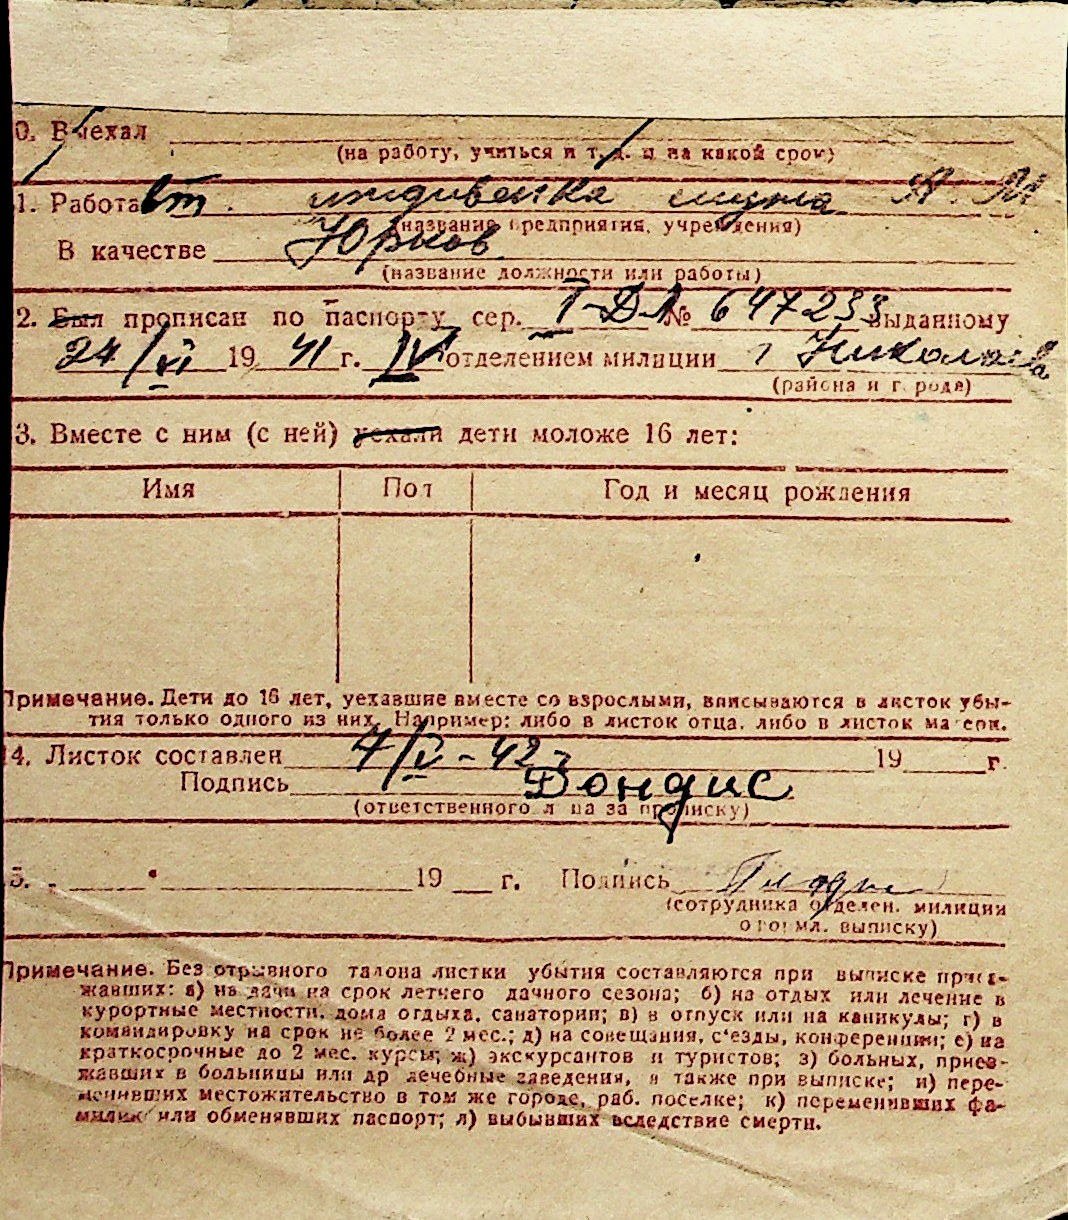 0. Выехал
(на работу, учиться и т. д. и на какой срок)
1. Работает. иждивенка мужа
(название предприятия, учреждения)
В качестве Юрков
(название должности или работы)
2. Был прописан по паспорту сер. № 647233 выданному
24/VI 19 41 г. IV отделением милиции г Николаева
(района и города)
3. Вместе с ним (с ней) уехали дети моложе 16 лет:
Имя Пол Год и месяц рождения
Примечание. Дети до 16 лет, уехавшие вместе со взрослыми, вписываются в листок убы-
тия только одного из них. Например: либо в листок отца, либо в листок матери.
14. Листок составлен 4/IV - 42 г 19 г.
Подпись Дондис
(ответственного лица за прописку)
5. " " 19 г. Подпись
(сотрудника отделен. милиции
оформл. выписку)
Примечание. Без отрывного талона листки убытия составляются при выписке приез-
жавших: а) на дачи на срок летнего дачного сезона; б) на отдых или лечение в
курортные местности, дома отдыха, санатории; в) в отпуск или на каникулы; г) в
командировку на срок не более 2 мес.; д) на совещания, с'езды, конференции; е) на
краткосрочные до 2 мес. курсы; ж) экскурсантов и туристов; з) больных, приез-
жавших в больницы или др лечебные заведения, а также при выписке; и) пере-
менивших местожительство в том же городе, раб. поселке; к) переменивших фа-
милию или обменявших паспорт; л) выбывших вследствие смерти.